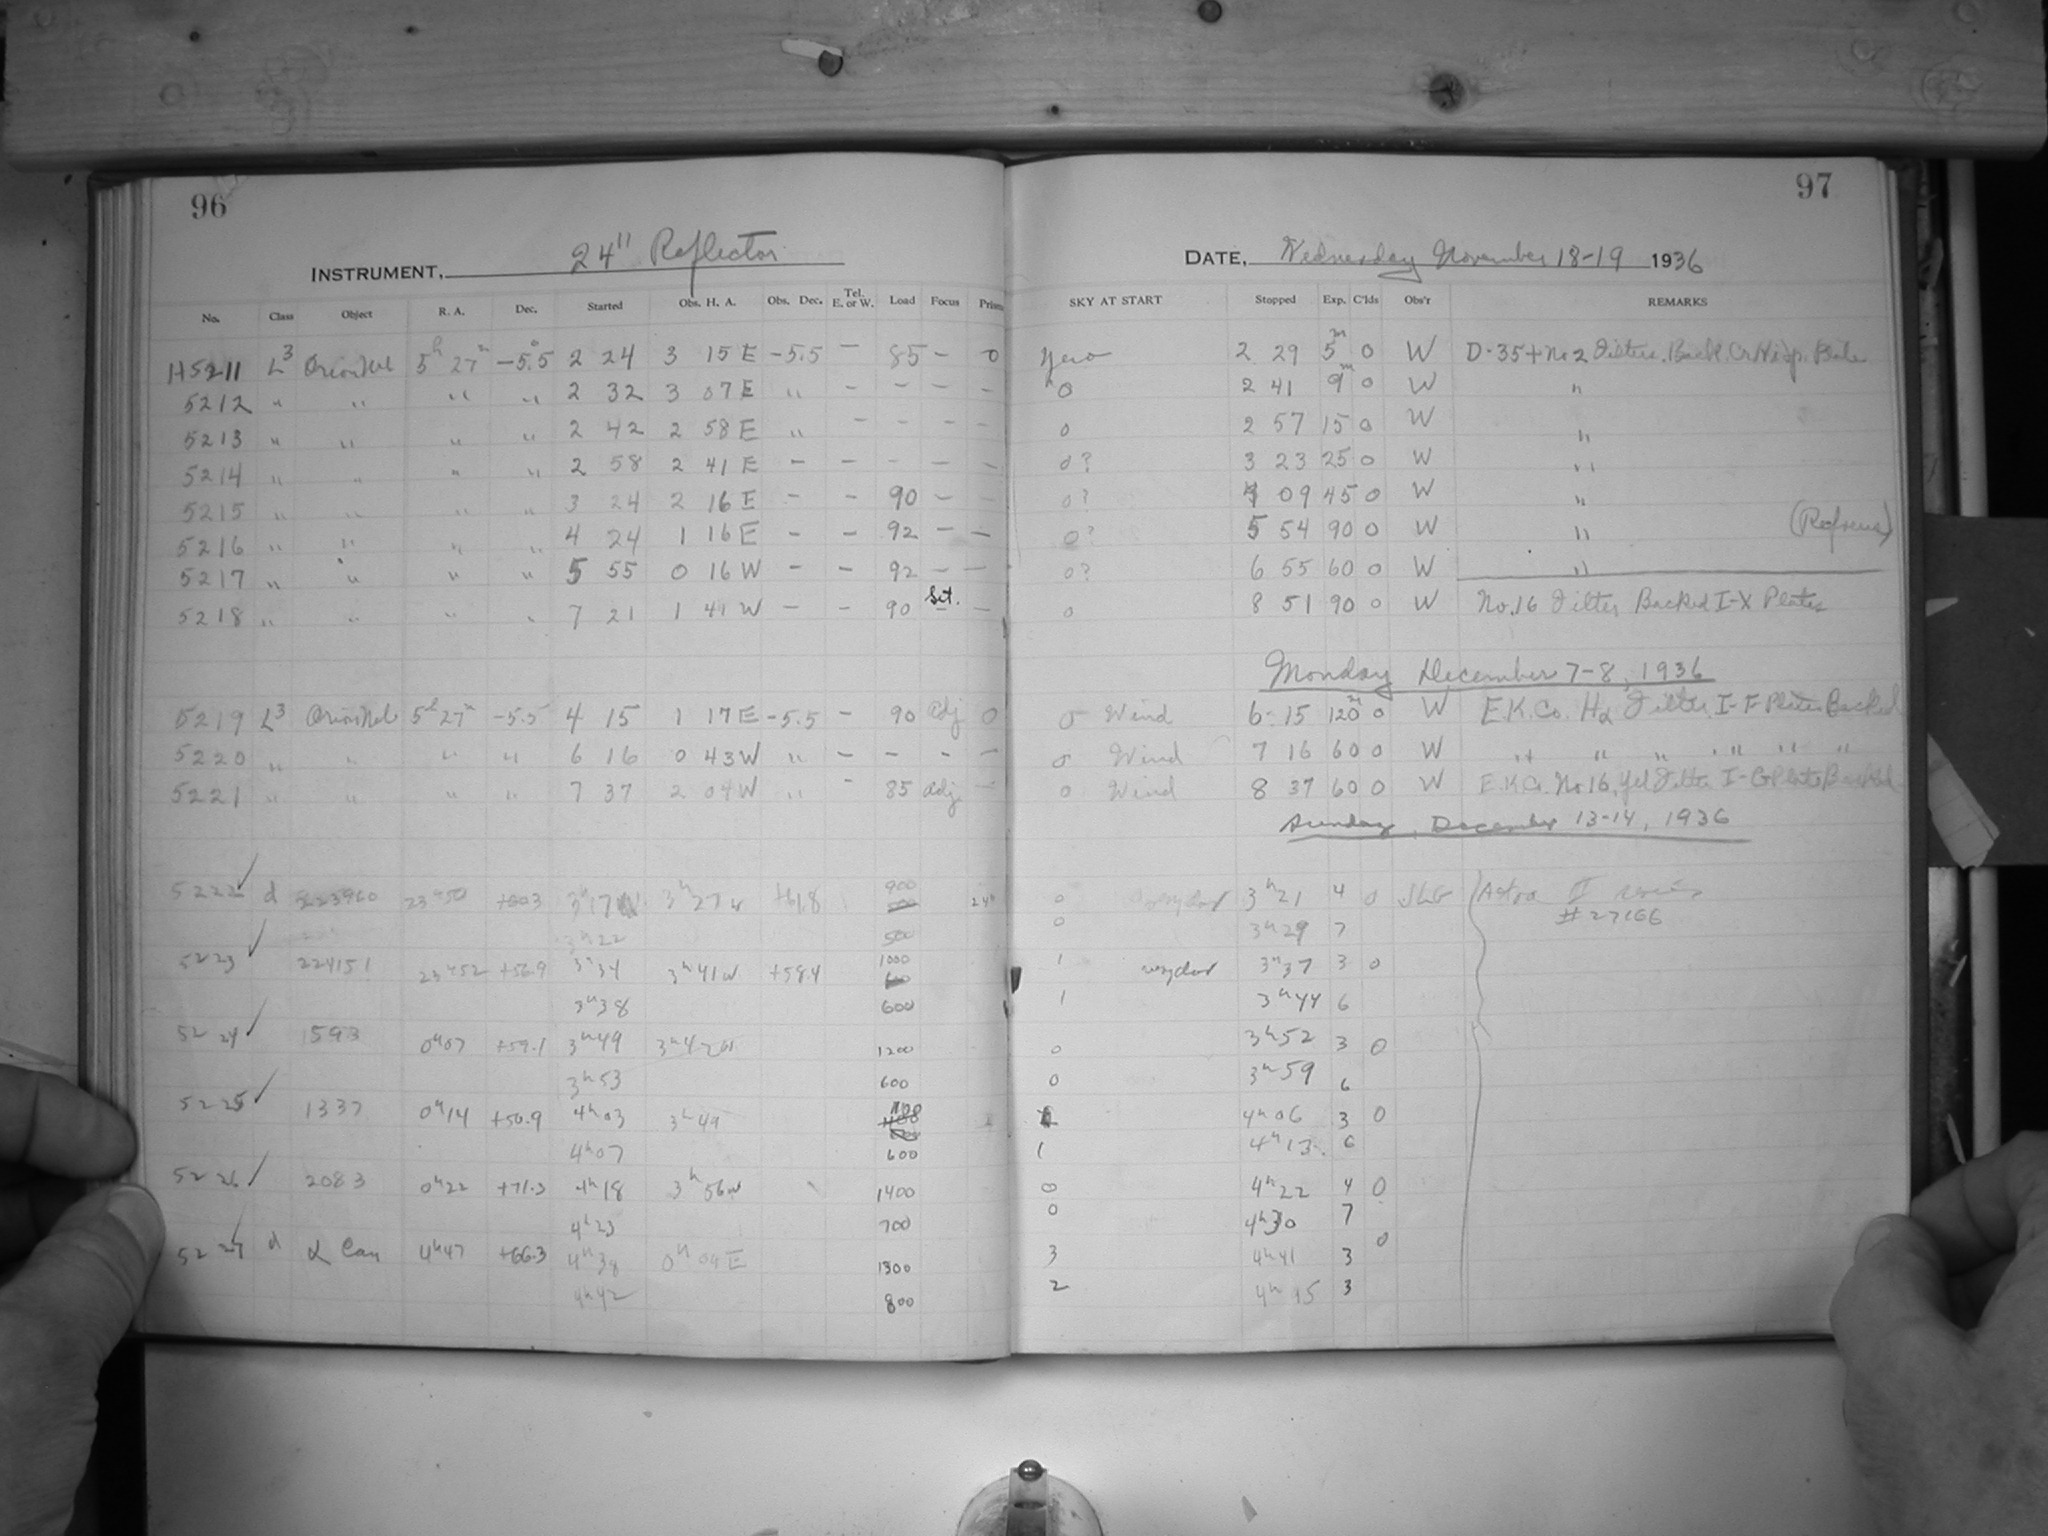 96
97
INSTRUMENT, 24" Reflector
DATE, Wednesday November 18-19 1936
No. Class Object R. A. Dec. Started Obs. H. A. Obs. Dec. Tel. E. or W. Load Focus
SKY AT START Stopped Exp. C'lds Obs'r REMARKS
H5211 L3 Orion Neb 5h 27m -5.5° 2 24 3 15 E -5.5 - 85 - 0 2 29 5m 0 W D-35 + No 2 Filters.
5212 " " " " 2 32 3 07 E " - - - - 0 2 41 9m 0 W "
5213 " " " " 2 42 2 58 E " - - - - 0 2 57 15 0 W "
5214 " " " " 2 58 2 41 E - - - - - 0? 3 23 25 0 W "
5215 " " " " 3 24 2 16 E - - 90 - - 0? 4 09 45 0 W "
5216 " " " " 4 24 1 16 E - - 92 - - 0? 5 54 90 0 W " (Refocus)
5217 " " " " 5 55 0 16 W - - 92 - - 0? 6 55 60 0 W "
5218 " " " " 7 21 1 41 W - - 90 Set. - 0 8 51 90 0 W No. 16 Filter Backed I-X Plates
Monday December 7-8, 1936
5219 L3 Orion Neb 5h 27m -5.5 4 15 1 17 E -5.5 - 90 Adj 0 0 Wind 6 15 120m 0 W E.K.Co. Hα Filter I-F Plates Backed
5220 " " " " 6 16 0 43 W " - - - - 0 Wind 7 16 60 0 W " " " " " "
5221 " " " " 7 37 2 04 W " - 85 Adj - 0 Wind 8 37 60 0 W E.K.Co. No 16, Yel Filter I-G Plates Backed
Sunday, December 13-14, 1936
5222 d 223960 +61.8 900 24" 0 3h21 4 0 Astro
3h22 500 0 3h29 7 # 27166
5223 224151 23h52 +56.9 3h34 3h41w +58.4 1000 1 3h37 3 0
3h38 600 1 3h44 6
5224 1593 0h07 +59.1 3h49 3h42w 1200 0 3h52 3 0
3h53 600 0 3h59 6
5225 1337 0h14 +50.9 4h03 3h49 4h06 3 0
4h07 600 1 4h13 6
5226 2083 0h22 +71.3 4h18 3h56w 1400 0 4h22 4 0
4h23 700 0 4h30 7
5227 d α Cam 4h47 +66.3 4h38 0h04E 1300 3 4h41 3 0
4h42 800 2 4h45 3